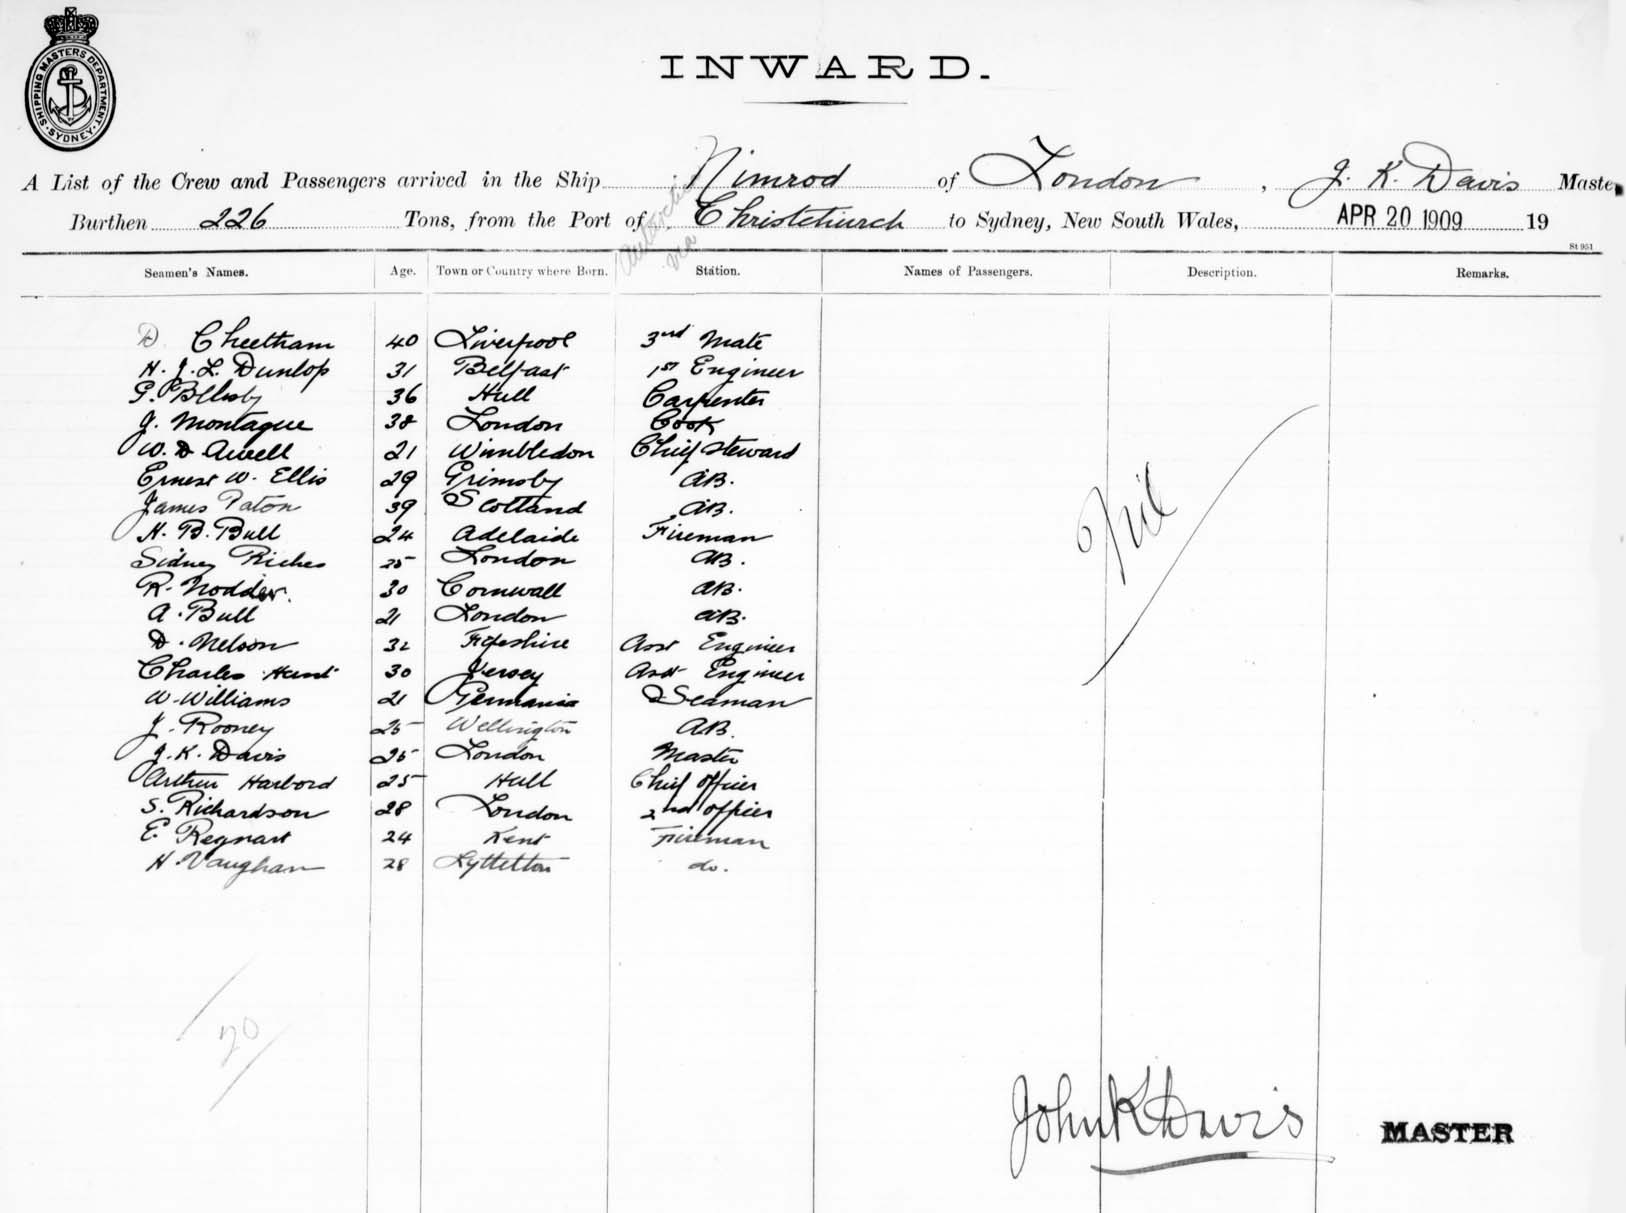 SHIPPING MASTERS DEPARTMENT. SYDNEY.
INWARD.
A List of the Crew and Passengers arrived in the Ship Nimrod of London, J. K. Davis Master
Burthen 226 Tons, from the Port of Antarctic via Christchurch to Sydney, New South Wales, APR 20 1909 19
St 951
Seamen's Names. Age. Town or Country where Born. Station. Names of Passengers. Description. Remarks.
D Cheetham 40 Liverpool 3rd Mate
H. J. L. Dunlop 31 Belfast 1st Engineer
G. 36 Hull Carpenter
J. Montague 38 London Cook
W. D 21 Wimbledon Chief Steward
Ernest W. Ellis 29 Grimsby AB.
James Paton 39 Scotland AB.
H. B. Bull 24 Adelaide Fireman
Sidney Riches 25 London AB.
R. Nodder. 30 Cornwall AB.
A. Bull 21 London AB.
D. Nelson 32 Asst Engineer
Charles Hunt 30 Jersey Asst Engineer
W. Williams 21 Germania Seaman
J. Rooney 25 Wellington AB.
J. K. Davis 25 London Master
Arthur Harbord 25 Hull Chief officer
S. Richardson 28 London 2nd officer
E. Regnart 24 Kent Fireman
H. Vaughan 28 Lyttelton do.
Nil
20
John K Davis
MASTER